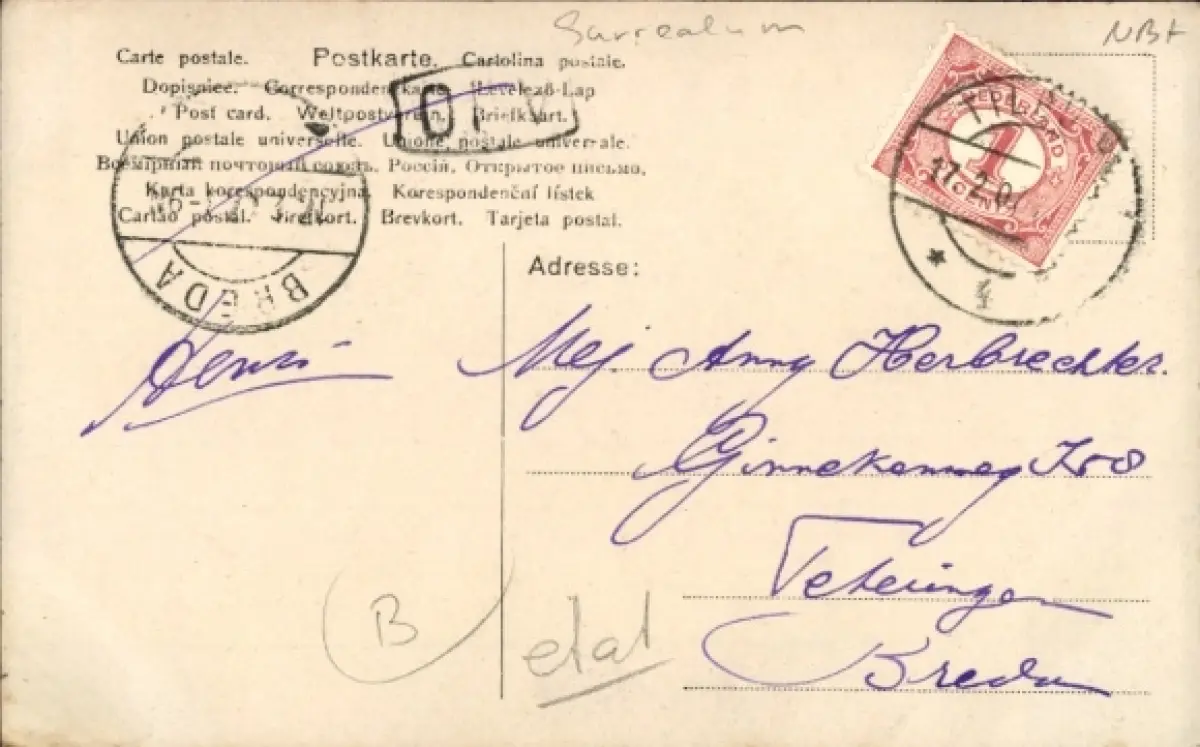 Surrealism
NBr
Carte postale. Postkarte. Cartolina postale.
Dopisniec. Correspondenzkarte. Levelező-Lap
Post card. Weltpostverein. Briefkaart.
Union postale universelle. Unione postale universale.
Всемірный почтовый союзъ. Россія. Открытое письмо.
Karta korespondencyjna Korespondenční lístek
Cartão postal. Brefkort. Brevkort. Tarjeta postal.
BREDA
NEDERLAND
1
CENT
17.2.0
4
Adresse:
Henri
Mej. Anny Herbrechter.
Ginnekenweg
Teteringen
Breda
B
etat